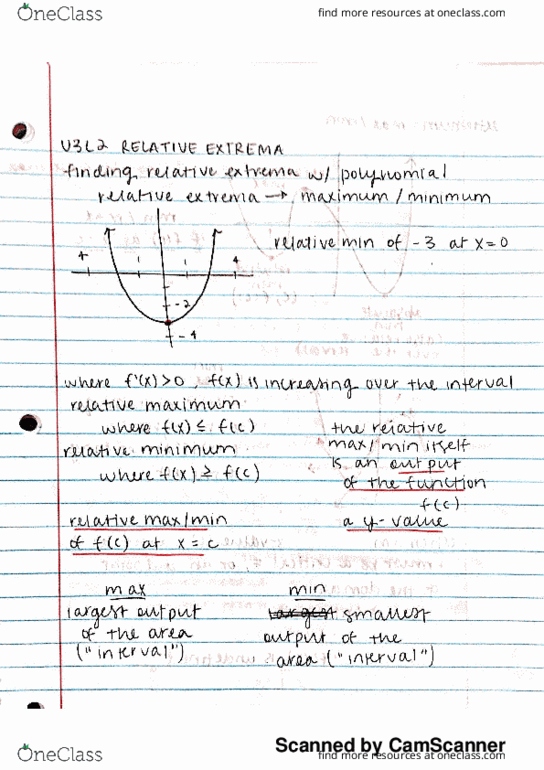 OneClass
find more resources at oneclass.com
U3L2 RELATIVE EXTREMA
finding relative extrema w/ polynomial
relative extrema → maximum / minimum
relative min of -3 at x=0
4
4
-2
-4
where f'(x) > 0, f(x) is increasing over the interval
relative maximum
where f(x) ≤ f(c)
relative minimum
where f(x) ≥ f(c)
the relative
max/min itself
is an output
of the function
f(c)
a y-value
relative max/min
of f(c) at x = c
max
largest output
of the area
("interval")
min
largest smallest
output of the
area ("interval")
Scanned by CamScanner
OneClass
find more resources at oneclass.com